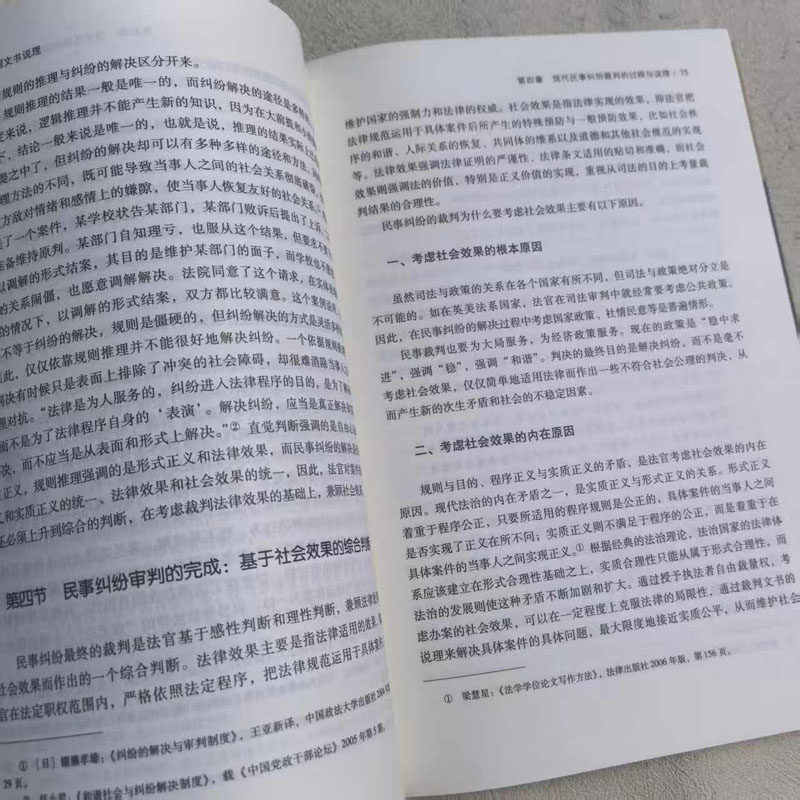 文书说理
规则的推理与纠纷的解决区分开来。
规则推理的结果一般是唯一的，而纠纷解决的途径是多样
度来说，逻辑推理并不能产生新的知识，因为在大前提和小前
下，结论一般来说是唯一的，也就是说，推理的结果实际上
提之中了，但纠纷的解决却可以有多种多样的途径和方法，
理方法的不同，既可能导致当事人之间的社会关系彻底破裂，
方敌对情绪和感情上的嫌隙，使当事人恢复友好的社会关系。
了一个案件，某学校状告某部门，某部门败诉后提出了上诉，
准备维持原判。某部门自知理亏，也服从这个结果，但要求不要
以调解的形式结案，其目的是维护某部门的面子，而学校也不
的关系闹僵，也愿意调解解决。法院同意了这个请求，在实体
的情况下，以调解的形式结案，双方都比较满意。这个案例说明，
不等于纠纷的解决，规则是僵硬的，但纠纷解决的方式是灵活多样
此，仅仅依靠规则推理并不能很好地解决纠纷。一个依据规则
判决有时候只是表面上排除了冲突的社会障碍，却很难消除当事人
理对抗。“法律是为人服务的，纠纷进入法律程序的目的，是为了解
而不是为了法律程序自身的‘表演’。解决纠纷，应当是真正解决
决，而不应当是从表面和形式上解决。”② 直觉判断强调的是自由心
正义，规则推理强调的是形式正义和法律效果，而民事纠纷的解决
义和实质正义的统一、法律效果和社会效果的统一，因此，法官对案件
还必须上升到综合的判断，在考虑裁判法律效果的基础上，兼顾社会效
第四节 民事纠纷审判的完成：基于社会效果的综合判
民事纠纷最终的裁判是法官基于感性判断和理性判断，兼顾法律
社会效果而作出的一个综合判断。法律效果主要是指法律适用的效果，
官在法定职权范围内，严格依照法定程序，把法律规范运用于具体案件
① ［日］棚濑孝雄：《纠纷的解决与审判制度》，王亚新译，中国政法大学出版社
29页。
《和谐社会与纠纷解决制度》，载《中国党政干部论坛》2005年第5期。
第四章 现代民事纠纷裁判的过程与说理 / 75
维护国家的强制力和法律的权威。社会效果是指法律实现的效果，即法官把
法律规范运用于具体案件后所产生的特殊预防与一般预防效果，比如社会秩
序的和谐、人际关系的恢复、共同体的维系以及道德和其他社会规范的实现
等。法律效果强调法律证明的严谨性、法律条文适用的贴切和准确，而社会
效果则强调法的价值，特别是正义价值的实现，重视从司法的目的上考量裁
判结果的合理性。
民事纠纷的裁判为什么要考虑社会效果主要有以下原因。
一、考虑社会效果的根本原因
虽然司法与政策的关系在各个国家有所不同，但司法与政策绝对分立是
不可能的。如在英美法系国家，法官在司法审判中就经常要考虑公共政策。
因此，在民事纠纷的解决过程中考虑国家政策、社情民意等是普遍情形。
民事裁判也要为大局服务，为经济政策服务。现在的政策是“稳中求
进”，强调“稳”，强调“和谐”。判决的最终目的是解决纠纷，而不是毫不
考虑社会效果，仅仅简单地适用法律而作出一些不符合社会公理的判决，从
而产生新的次生矛盾和社会的不稳定因素。
二、考虑社会效果的内在原因
规则与目的、程序正义与实质正义的矛盾，是法官考虑社会效果的内在
原因。现代法治的内在矛盾之一，是实质正义与形式正义的关系。形式正义
着重于程序公正，只要所适用的程序规则是公正的，具体案件的当事人之间
是否实现了正义在所不问；实质正义则不满足于程序的公正，而是着重于在
具体案件的当事人之间实现正义。① 根据经典的法治理论，法治国家的法律体
系应该建立在形式合理性基础之上，实质合理性只能从属于形式合理性，而
法治的发展则使这种矛盾不断加剧和扩大。通过授予执法者自由裁量权，考
虑办案的社会效果，可以在一定程度上克服法律的局限性，通过裁判文书的
说理来解决具体案件的具体问题，最大限度地接近实质公平，从而维护社会
① 梁慧星：《法学学位论文写作方法》，法律出版社2006年版，第156页。